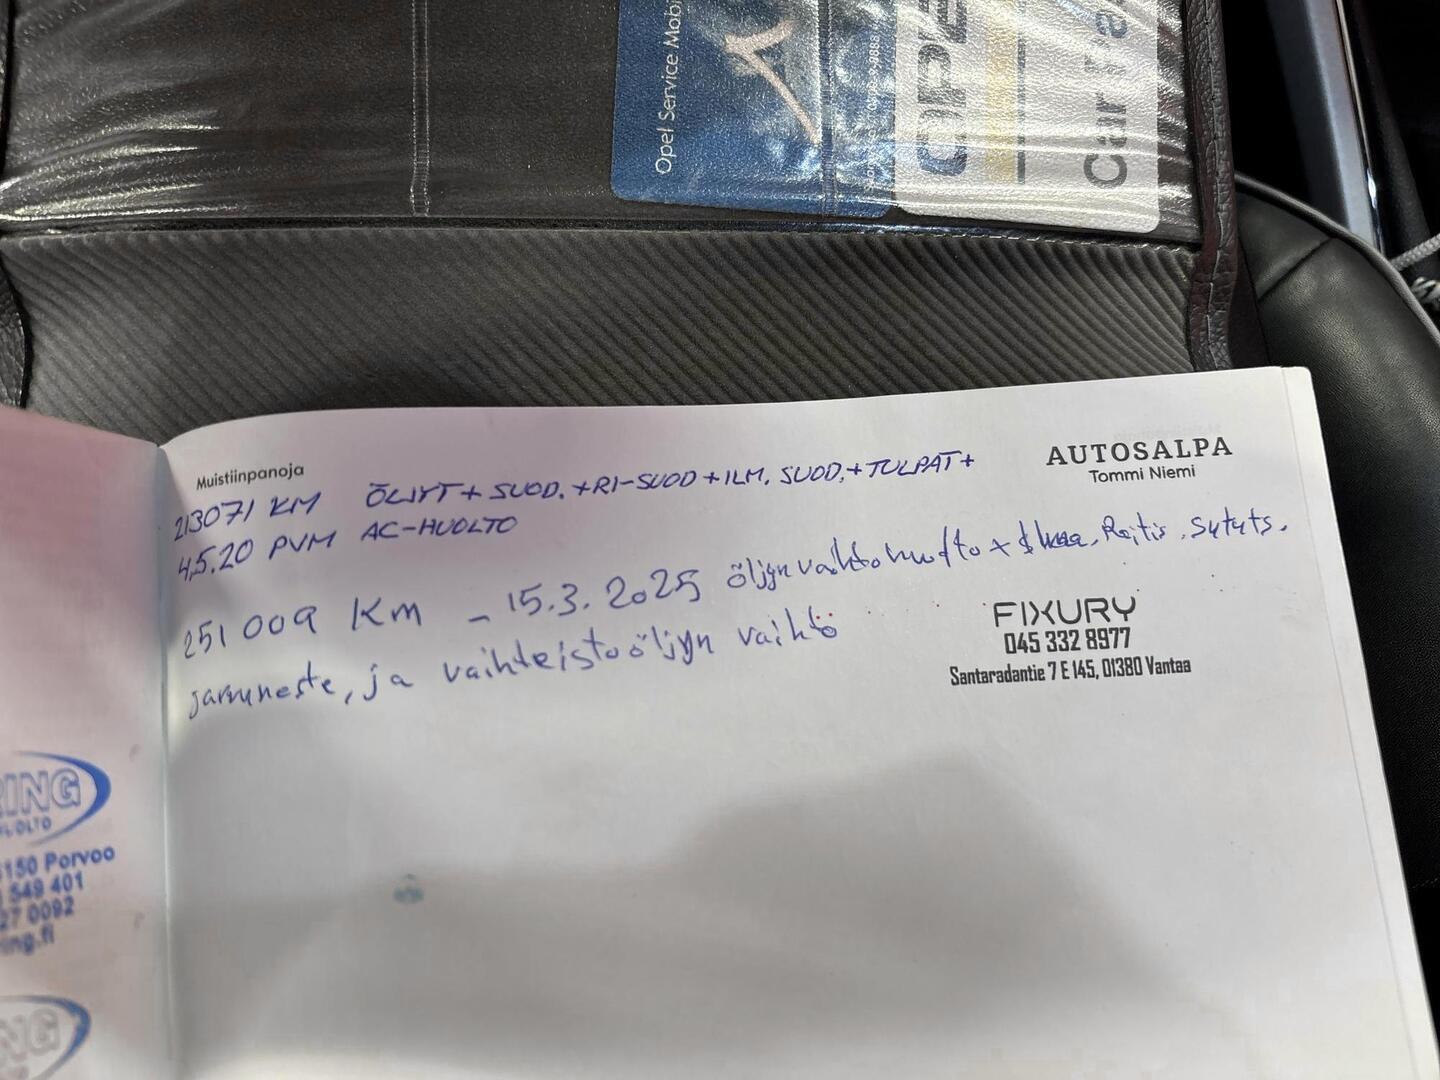 Opel Service Mobi
OPE
Car Pa
Muistiinpanoja
AUTOSALPA
Tommi Niemi
213071 KM ÖLJYT + SUOD. + RI-SUOD + ILM. SUOD. + TULPAT +
4.5.20 PVM AC-HUOLTO
251 009 KM - 15.3.2025 öljynvaihtohuolto + Raitis. Sytyts.
jarruneste, ja vaihteistoöljyn vaihto
FIXURY
045 332 8977
Santaradantie 7 E 145, 01380 Vantaa
RING
HUOLTO
150 Porvoo
549 401
27 0092
ing.fi
NG